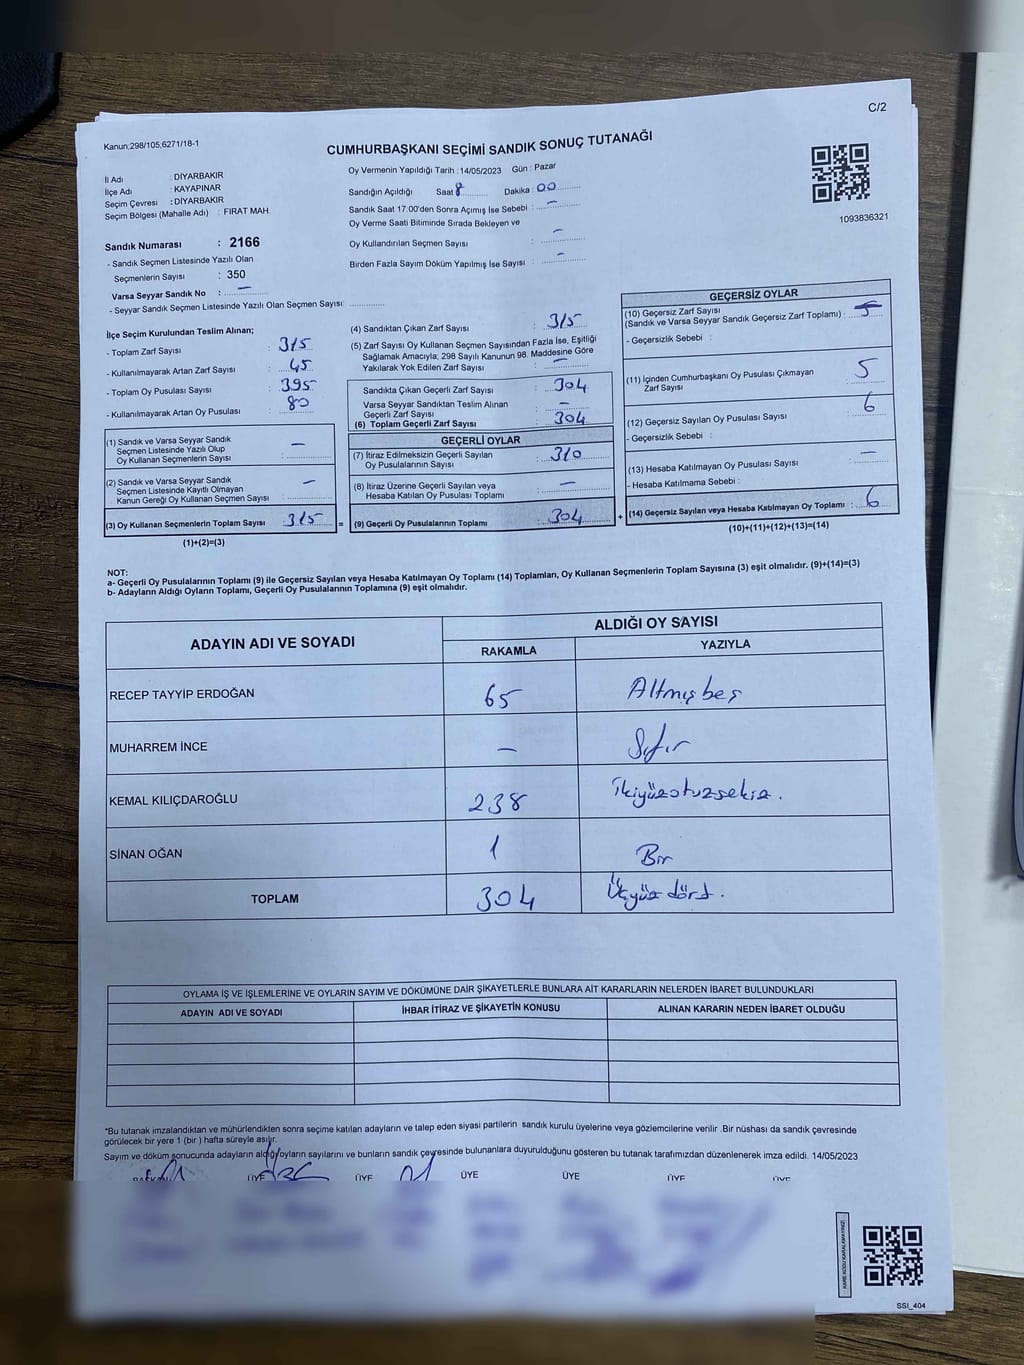 C/2
Kanun:298/105,6271/18-1
CUMHURBAŞKANI SEÇİMİ SANDIK SONUÇ TUTANAĞI
İl Adı : DİYARBAKIR
İlçe Adı : KAYAPINAR
Seçim Çevresi : DİYARBAKIR
Seçim Bölgesi (Mahalle Adı) : FIRAT MAH.
Oy Vermenin Yapıldığı Tarih :14/05/2023 Gün : Pazar
Sandığın Açıldığı Saat 8 Dakika : 00
Sandık Saat 17.00'den Sonra Açımış İse Sebebi : -
Oy Verme Saati Bitiminde Sırada Bekleyen ve
Oy Kullandırılan Seçmen Sayısı : -
Birden Fazla Sayım Döküm Yapılmış İse Sayısı : -
1093836321
Sandık Numarası : 2166
- Sandık Seçmen Listesinde Yazılı Olan
Seçmenlerin Sayısı : 350
Varsa Seyyar Sandık No : -
- Seyyar Sandık Seçmen Listesinde Yazılı Olan Seçmen Sayısı:
İlçe Seçim Kurulundan Teslim Alınan;
- Toplam Zarf Sayısı : 315
- Kullanılmayarak Artan Zarf Sayısı : 45
- Toplam Oy Pusulası Sayısı : 395
- Kullanılmayarak Artan Oy Pusulası : 80
(1) Sandık ve Varsa Seyyar Sandık
Seçmen Listesinde Yazılı Olup
Oy Kullanan Seçmenlerin Sayısı : -
(2) Sandık ve Varsa Seyyar Sandık
Seçmen Listesinde Kayıtlı Olmayan
Kanun Gereği Oy Kullanan Seçmen Sayısı : -
(3) Oy Kullanan Seçmenlerin Toplam Sayısı : 315 =
(1)+(2)=(3)
(4) Sandıktan Çıkan Zarf Sayısı : 315
(5) Zarf Sayısı Oy Kullanan Seçmen Sayısından Fazla İse, Eşitliği
Sağlamak Amacıyla; 298 Sayılı Kanunun 98. Maddesine Göre
Yakılarak Yok Edilen Zarf Sayısı : -
Sandıkta Çıkan Geçerli Zarf Sayısı : 304
Varsa Seyyar Sandıktan Teslim Alınan
Geçerli Zarf Sayısı : -
(6) Toplam Geçerli Zarf Sayısı : 304
GEÇERLİ OYLAR
(7) İtiraz Edilmeksizin Geçerli Sayılan
Oy Pusulalarının Sayısı : 310
(8) İtiraz Üzerine Geçerli Sayılan veya
Hesaba Katılan Oy Pusulası Toplamı : -
(9) Geçerli Oy Pusulalarının Toplamı : 304 +
GEÇERSİZ OYLAR
(10) Geçersiz Zarf Sayısı
(Sandık ve Varsa Seyyar Sandık Geçersiz Zarf Toplamı) :
- Geçersizlik Sebebi :
(11) İçinden Cumhurbaşkanı Oy Pusulası Çıkmayan
Zarf Sayısı : 5
(12) Geçersiz Sayılan Oy Pusulası Sayısı : 6
- Geçersizlik Sebebi :
(13) Hesaba Katılmayan Oy Pusulası Sayısı : -
- Hesaba Katılmama Sebebi :
(14) Geçersiz Sayılan veya Hesaba Katılmayan Oy Toplamı : 6
(10)+(11)+(12)+(13)=(14)
NOT:
a- Geçerli Oy Pusulalarının Toplamı (9) ile Geçersiz Sayılan veya Hesaba Katılmayan Oy Toplamı (14) Toplamları, Oy Kullanan Seçmenlerin Toplam Sayısına (3) eşit olmalıdır. (9)+(14)=(3)
b- Adayların Aldığı Oyların Toplamı, Geçerli Oy Pusulalarının Toplamına (9) eşit olmalıdır.
ADAYIN ADI VE SOYADI
ALDIĞI OY SAYISI
RAKAMLA YAZIYLA
RECEP TAYYİP ERDOĞAN 65 Altmışbeş
MUHARREM İNCE - Sıfır
KEMAL KILIÇDAROĞLU 238 İkiyüzotuzsekiz.
SİNAN OĞAN 1 Bir
TOPLAM 304 Üçyüz dört.
OYLAMA İŞ VE İŞLEMLERİNE VE OYLARIN SAYIM VE DÖKÜMÜNE DAİR ŞİKAYETLERLE BUNLARA AİT KARARLARIN NELERDEN İBARET BULUNDUKLARI
ADAYIN ADI VE SOYADI İHBAR İTİRAZ VE ŞİKAYETİN KONUSU ALINAN KARARIN NEDEN İBARET OLDUĞU
*Bu tutanak imzalandıktan ve mühürlendikten sonra seçime katılan adayların ve talep eden siyasi partilerin sandık kurulu üyelerine veya gözlemcilerine verilir .Bir nüshası da sandık çevresinde
görülecek bir yere 1 (bir ) hafta süreyle asılır.
Sayım ve döküm sonucunda adayların aldığı oyların sayılarını ve bunların sandık çevresinde bulunanlara duyurulduğunu gösteren bu tutanak tarafımızdan düzenlenerek imza edildi. 14/05/2023
BAŞKAN ÜYE ÜYE ÜYE ÜYE ÜYE ÜYE
KARE KODU KARALAMAYINIZ!
SSI_404